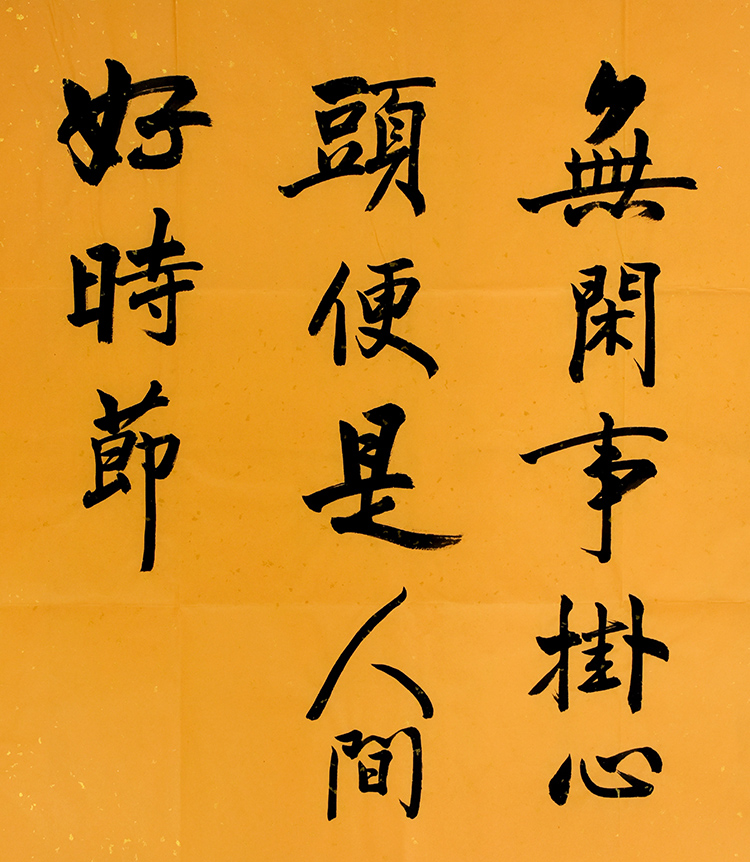 無閑事掛心
頭便是人間
好時節